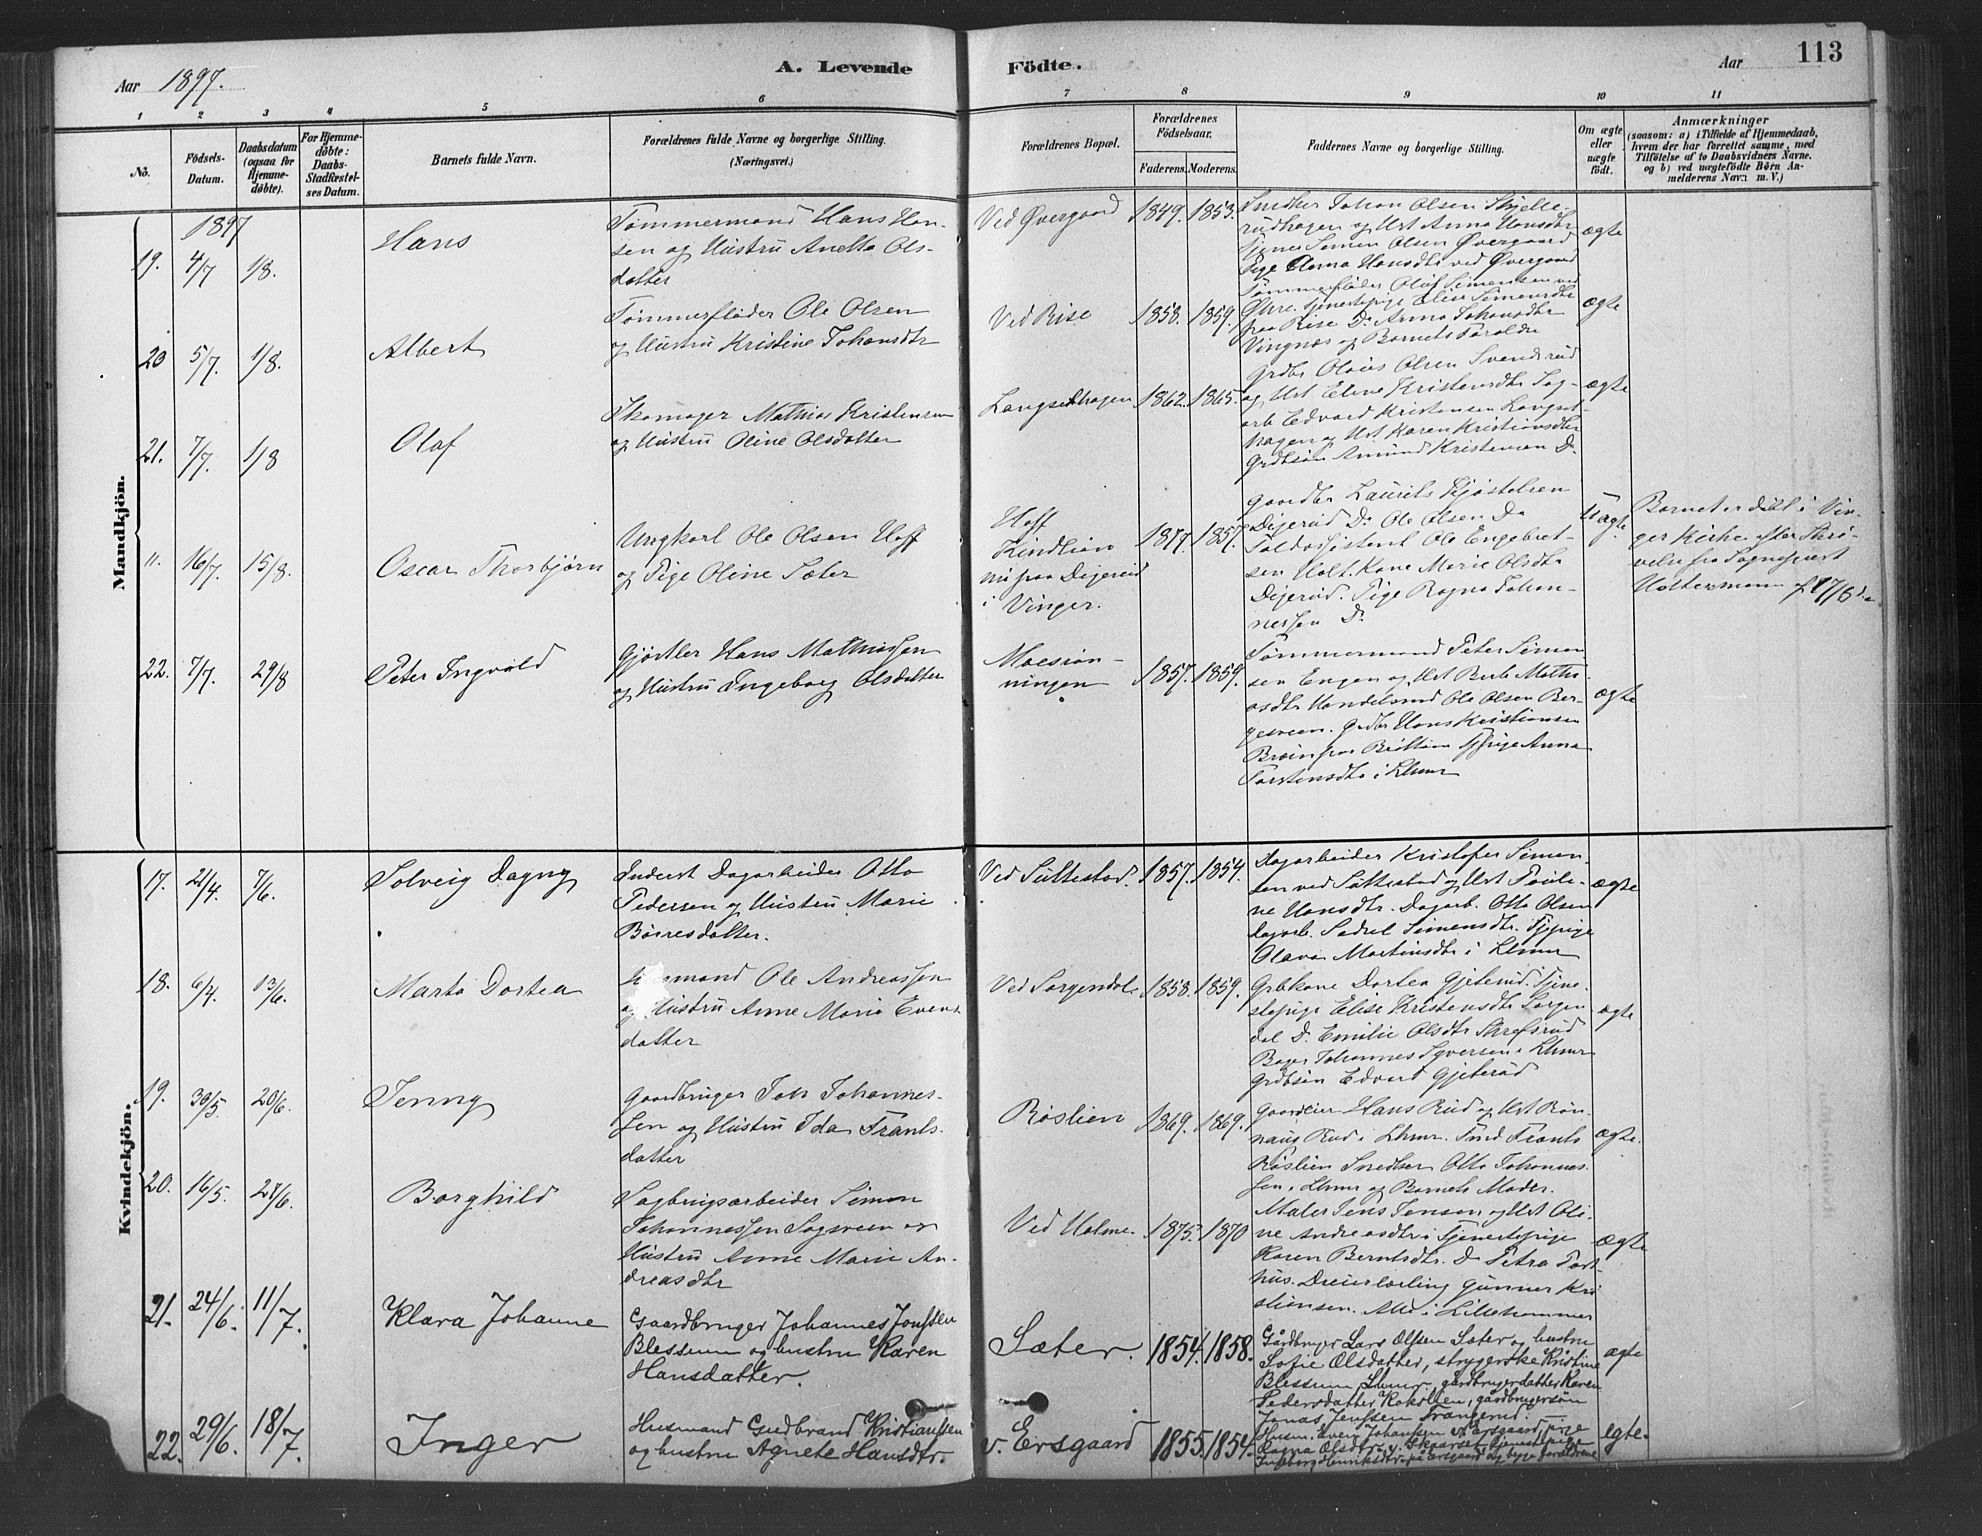 Aar 1897.
A. Levende
Födte.
Aar
113
1
2
3
4
5
6
7
8
9
10
11
No.
Födsels-
Datum.
Daabsdatum
(ogsaa for
Hjemme-
döbte).
For Hjemme-
döbte:
Daabs-
Stadfæstel-
ses Datum.
Barnets fulde Navn.
Forældrenes fulde Navne og borgerlige Stilling.
(Næringsvei.)
Forældrenes Bopæl.
Forældrenes
Födselsaar.
Faderens.
Moderens.
Faddernes Navne og borgerlige Stilling.
Om ægte
eller
uægte
födt.
Anmærkninger
(saasom: a) i Tilfælde af Hjemmedaab,
hvem der har forrettet samme, med
Tilföielse af to Daabsvidners Navne.
og b) ved uægtefödte Börn An-
melderens Navn m. V.)
Mandkjön.
1897
19.
4/7
1/8.
Hans
Tømmermand Hans Han-
sen og Hustru Anetta Ols-
datter
Ved Øvergaard
1849.
1853.
Snedker Johan Olsen Skjelle-
rudhagen og Hst Anna Hansdtr
Simen Olsen Øvergaard
Pige Anna Hansdtr ved Øvergaard
ægte
20
5/7.
1/8.
Albert
Tømmerfløder Ole Olsen
og Hustru Kristine Johansdtr
Ved Rise
1858.
1859.
Tømmerfløder Olaf Simensen ved
Øhre. Tjenestepige Elise Simensdtr
paa Rise Do Anna Johansdtr
Vingnæs og Barnets Forældre
ægte
21.
7/7.
1/8
Olaf
Skomager Mathias Kristensen
og Hustru Oline Olsdatter
Langsethagen
1862.
1865.
Grdbr Olaus Olsen Svendsrud
og Hst Eline Kristensdtr Sag-
arb Edvard Kristensen Langset-
hagen og Hst Karen Kristiansdtr
Grdbsøn Amund Kristensen Do
ægte
11.
16/7.
15/8.
Oscar Thorbjørn
Ungkarl Ole Olsen Hoff
og Pige Oline Sæter
Hoff
Kindlien
nu paa Digerud
i Vinger.
1877.
1857.
Gaardbr Laurits Kjøstelsen
Digerud Do Ole Olsen Do
Toldassistent Ole Engebret-
sen Holt. Kone Marie Olsdtr
Digerud. Pige Ragna Johan-
nessen Do
Uægte.
Barnet er døbt i Vin-
ger Kirke efter Skri-
velse fra Sognepræst
Haltermann af 17/8 d.a
22.
7/7.
29/8
Peter Ingvald
Gjørtler Hans Mathiassen
og Hustru Ingeborg Olsdatter
Moesrøn-
ningen
1857.
1859.
Tømmermand Peter Simen
sen Engen og Hst Berte Mathi
asdtr Handelsmd Ole Olsen Ber-
gesveen. Grdbr Hans Kristiansen
Anna
Torstensdtr i Lhmr
ægte
Kvindekjön.
17.
21/4.
7/6.
Solveig Dagny
Inderst Dagarbeider Otto
Pedersen og Hustru Marie
Børresdatter.
Ved Suttestad.
1857.
1854.
Dagarbeider Kristofer Simen-
sen ved Suttestad og Hst Pauli-
ne Hansdtr. Dagarb. Otto Olsen
Dagarb. Simensdtr. Tjpige
Olava Martinsdtr i Lhmr
ægte
18.
6/4.
13/6.
Marta Dortea
Husmand Ole Andreassen
og Hustru Anne Marie Evens
datter
Ved Sorgendal
1858.
1859.
Grbkone Dortea Gjeterud. Tjene-
stepige Elise Kristensdtr Sorgen
dal Do Emilie Olsdtr Skrefsrud
Bager Johannes Syversen i Lhmr
Grdbsøn Edvard Gjeterud
ægte
19.
30/5.
20/6.
Jenny
Gaardbruger Joh Johannes-
sen og Hustru Ida Frants-
datter
Røslien
1869.
1869.
Gaardeier Hans Rud og Hst Røn-
naug Rud i Lhmr. Frants
Røslien Snedker Otto Johannes-
sen i Lhmr og Barnets Moder.
ægte.
20.
16/5.
27/6.
Borghild
Sagbrugsarbeider Simen
Johannessen Sagsveen og
Hustru Anne Marie An-
dreasdtr
Ved Holme.
1875.
1870
Maler Jens Jensen og Hst Oli-
ne Andreasdtr Tjenestepige
Karen Berntsdtr. Do Petra
hus. Dreierlærling Gunner Kri
stiansen. Alle i Lillehammer
ægte
21.
24/6.
11/7.
Klara Johanne
Gaardbruger Johannes Jonssen
Blessum og hustru Karen
Hansdatter.
Sæter.
1854.
1858.
Gårdbruger Lars Olssen Sæter og hustru
Sofie Olsdatter, strygerske Kristine
Blessum, Lhmr, gårdbrugerdatter Karen
Pedersdatter Kokslien, gårdbrugersøn
Jonas Jenssen Frangerud.
ægte
22.
29/6.
18/7.
Inger
Husmand Gudbrand Kristianssen
og hustru Agnete Hansdtr.
v. Ersgaard
1855.
1854.
Husm. Even Johansen v. Ersgaard, Pige
Ragna Olsdtr. v. Skaarset, tjenestepige
Ingeborg Henriksdtr. på Ersgaard og begge forældrene
egte.